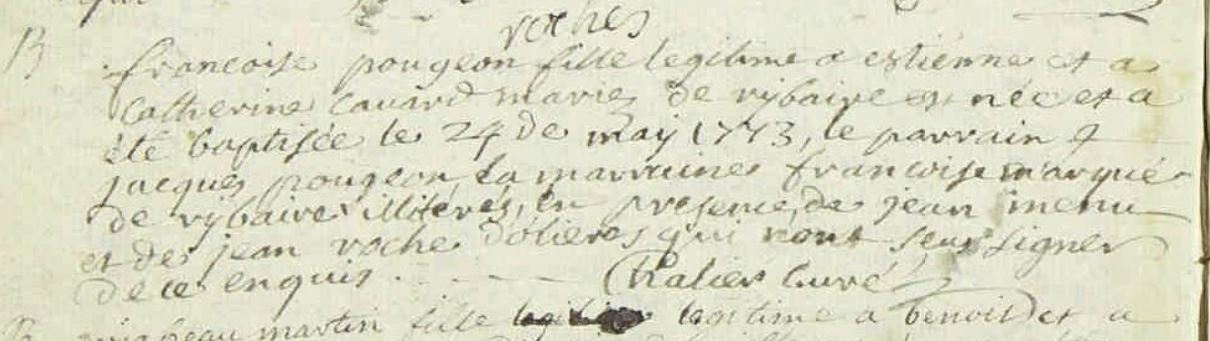 roches
B
francoise pougeon fille legitime a estienne et a
Catherine Cavard maries de rybaire est née et a
été baptisée le 24 de maÿ 1773, le parrain
jacques pougeon, la marraine francoise marqué
de rybaire illiteres, en presence de jean menu
et de jean roche dolieres qui nont seus signer
de ce enquis. Chalier Curé
martin fille legitime a benoit et a